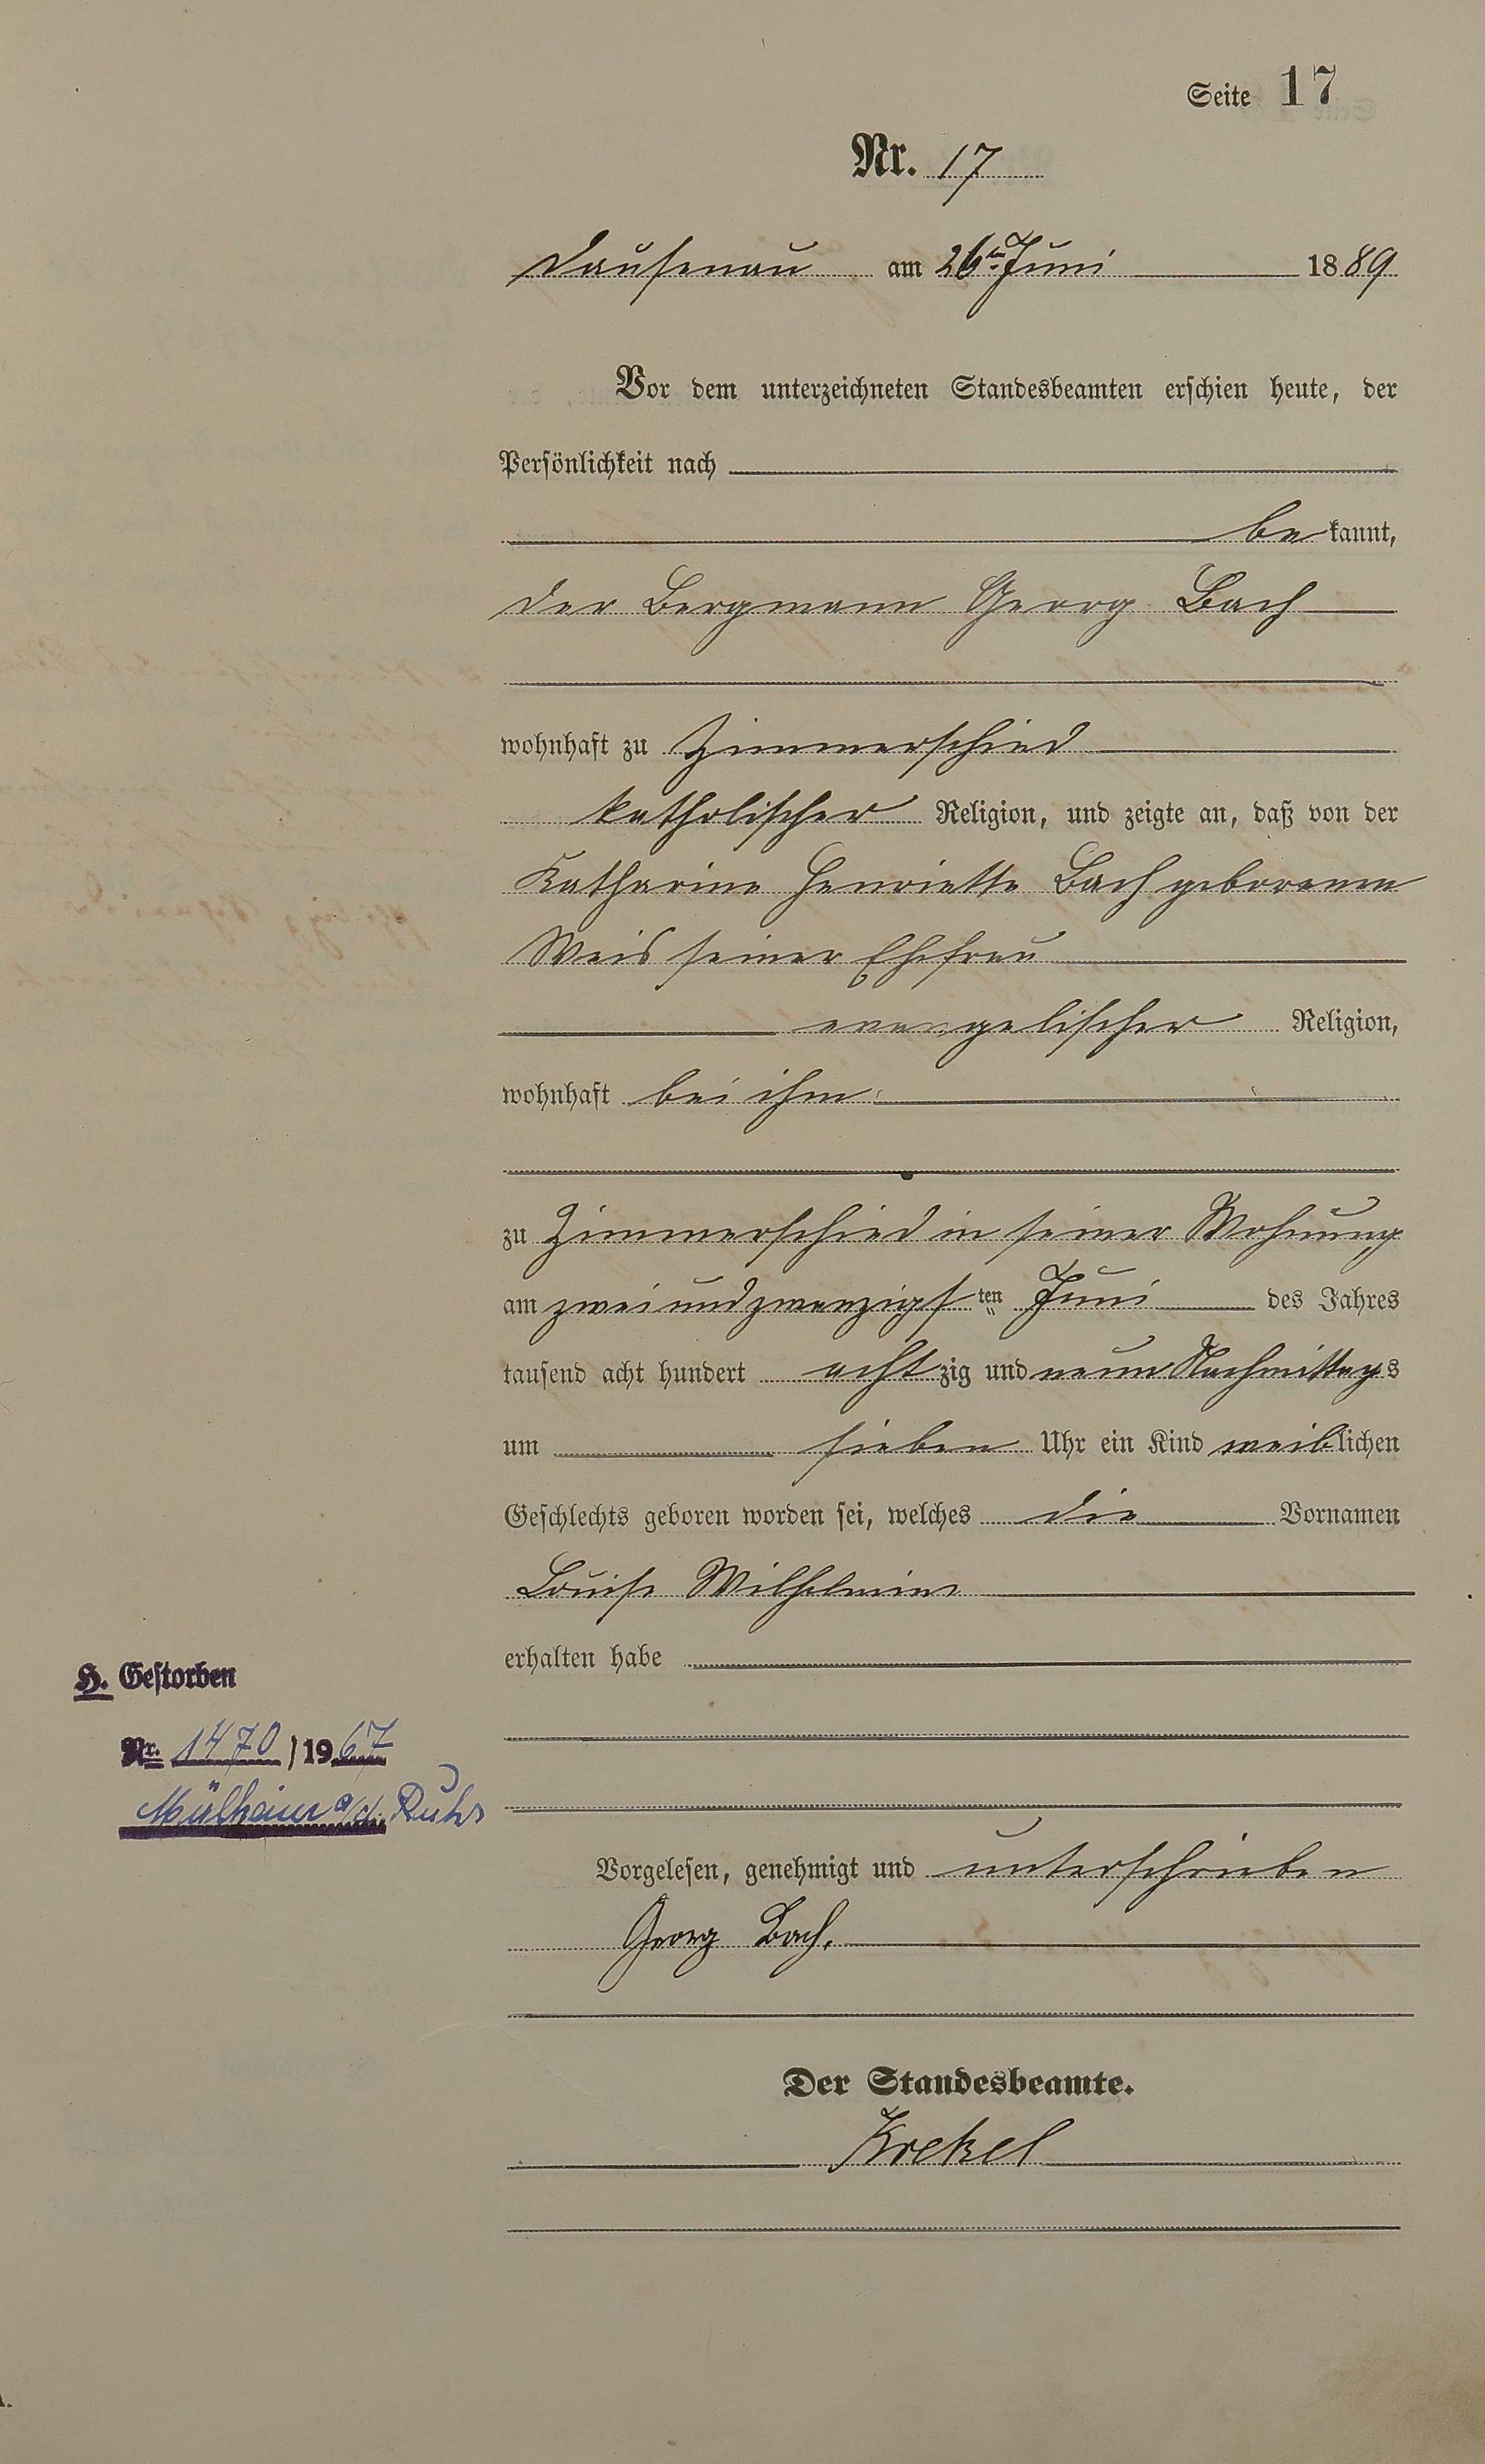 Seite 17
Nr. 17
Dausenau am 26ten Juni 1889
Vor dem unterzeichneten Standesbeamten erschien heute, der
Persönlichkeit nach
bekannt,
der Bergmann Georg Bach
wohnhaft zu Zimmerschied
katholischer Religion, und zeigte an, daß von der
Katharine Henriette Bach geborenen
Weis seiner Ehefrau
evangelischer Religion,
wohnhaft bei ihm
zu Zimmerschied in seiner Wohnung
am zweiundzwanzigsten Juni des Jahres
tausend acht hundert achtzig und neun Nachmittags
um sieben Uhr ein Kind weiblichen
Geschlechts geboren worden sei, welches die Vornamen
Louise Wilhelmine
erhalten habe
H. Gestorben
Nr. 1470/1967
Mülheim a/d. Ruhr
Vorgelesen, genehmigt und unterschrieben
Georg Bach.
Der Standesbeamte.
Krekel